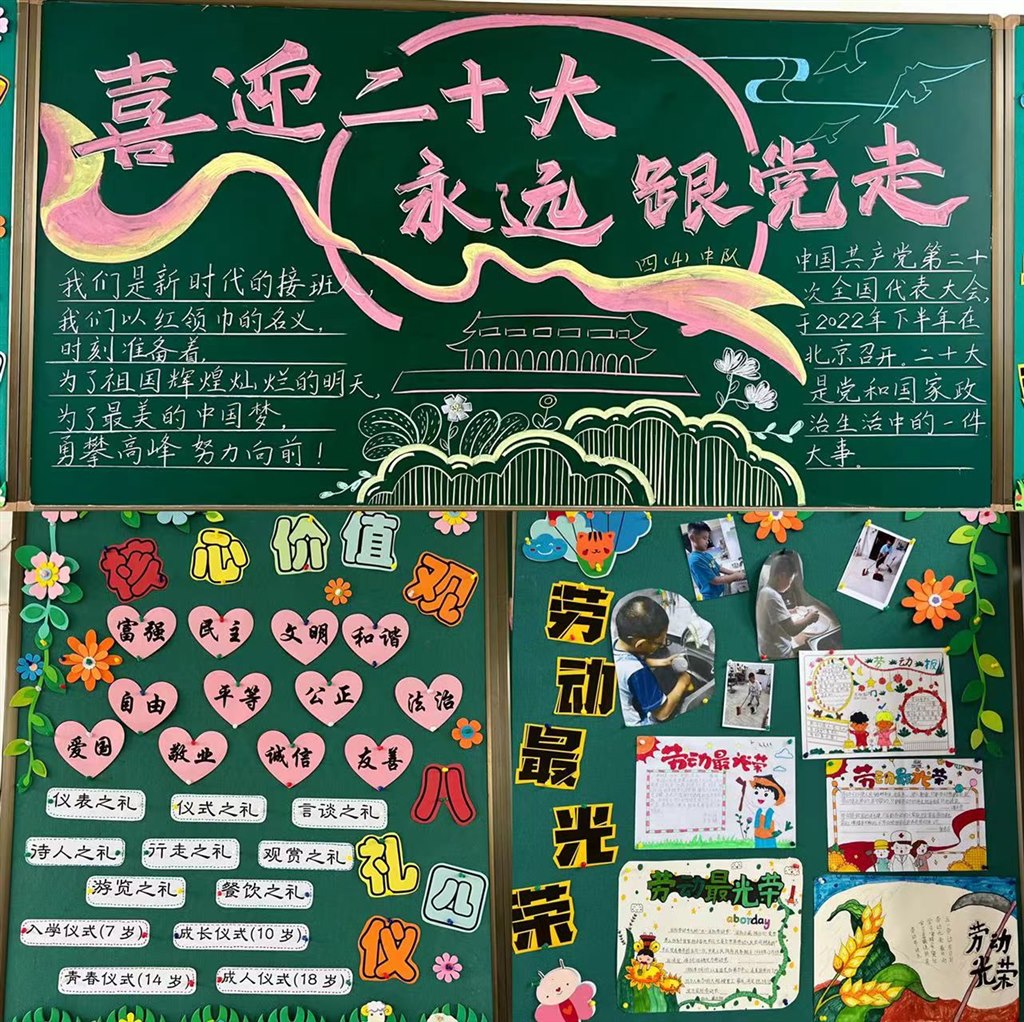 喜迎二十大
永远跟党走
四(4)中队
我们是新时代的接班人,
我们以红领巾的名义,
时刻准备着,
为了祖国辉煌灿烂的明天,
为了最美的中国梦,
勇攀高峰 努力向前!
中国共产党第二十
次全国代表大会,
于2022年下半年在
北京召开。二十大
是党和国家政
治生活中的一件
大事。
核心价值观
富强 民主 文明 和谐
自由 平等 公正 法治
爱国 敬业 诚信 友善
八礼
儿仪
仪表之礼 仪式之礼 言谈之礼
待人之礼 行走之礼 观赏之礼
游览之礼 餐饮之礼
入学仪式(7岁) 成长仪式(10岁)
青春仪式(14岁) 成人仪式(18岁)
劳动最光荣
劳动报
劳动最光荣
劳动最光荣
劳动最光荣
aborday
劳动
光荣